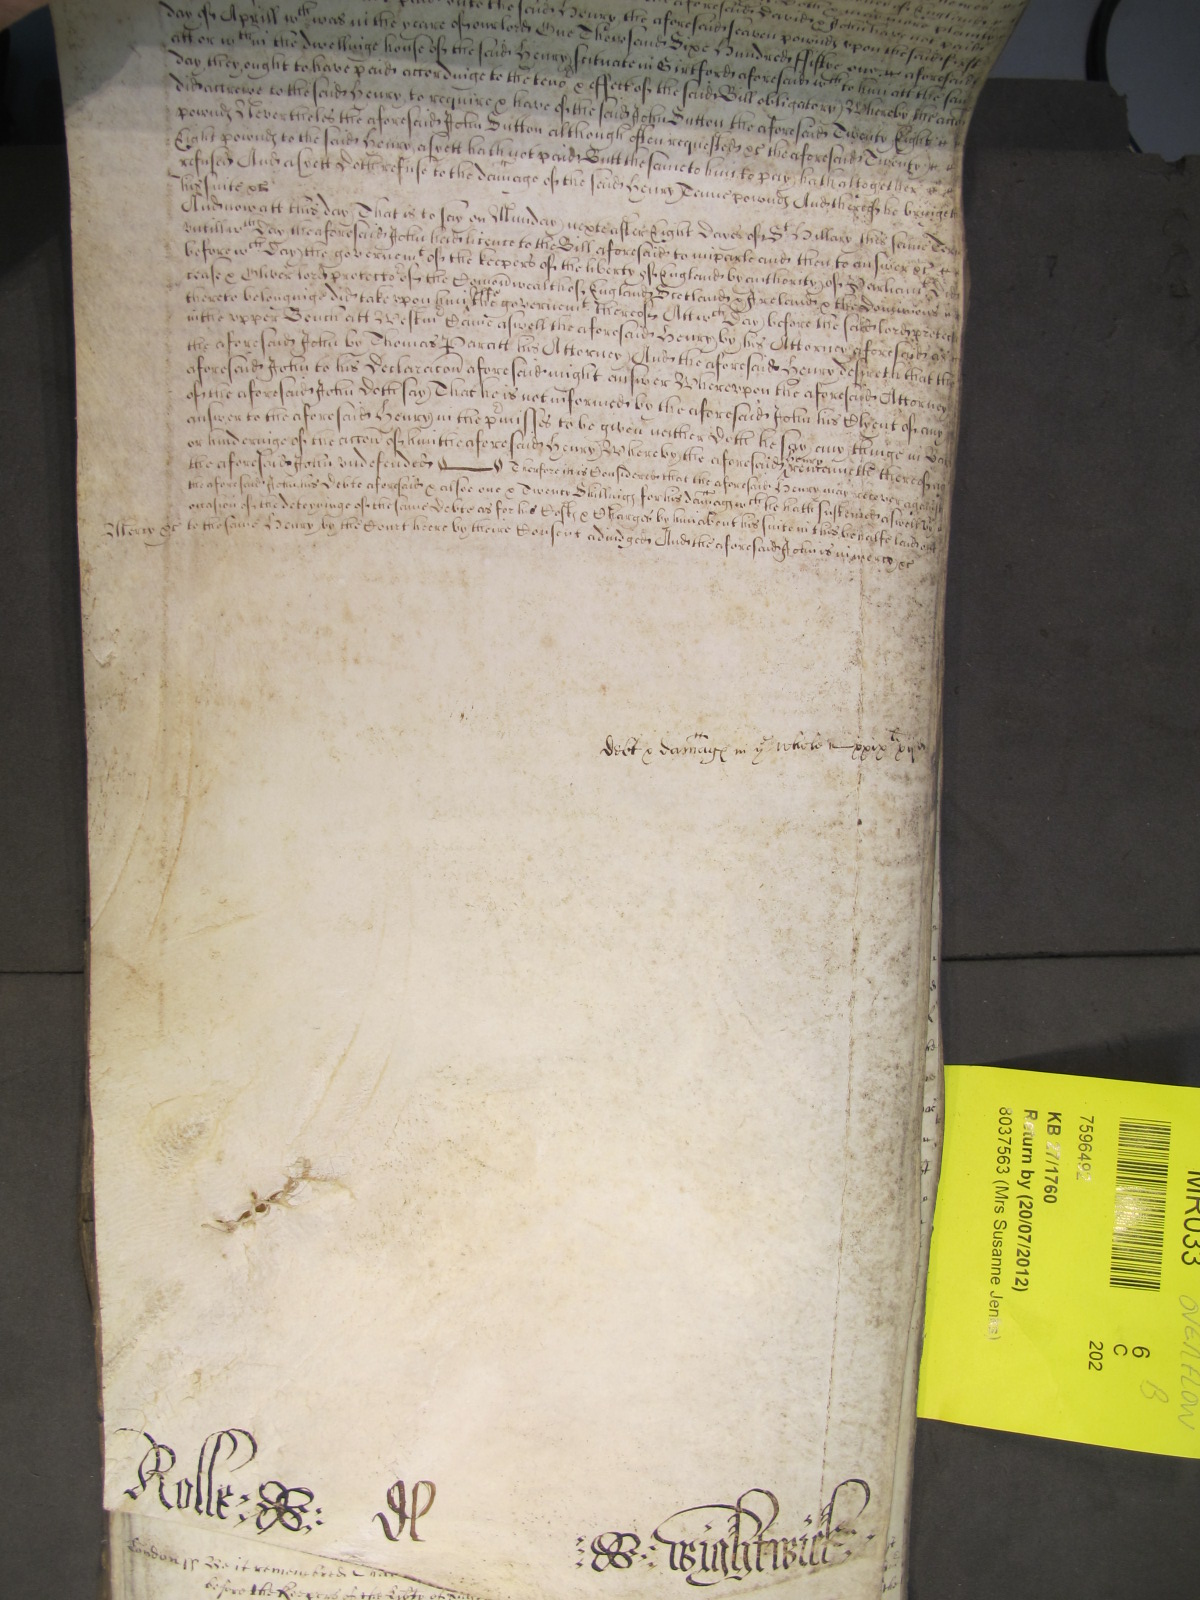 unto the said Henry the aforesaid seaven pownds upon the said first
day of Aprill wch was in the yeare of our lord One Thowsand Sixe Hundred ffiftie
att or wthin the dwellinge house of the said Henry situate in Girtford aforesaid wch to him att the same
day they ought to have paid accordinge to the teno & effect of the said Bill obligatory Whereby the accon
did accrewe to the said Henry to require & have of the said John Sutton the aforesaid Twenty Eight
pownds Neverthelesse the aforesaid John Sutton although often requested &c the aforesaid Twenty
Eight pownds to the said Henry as yett hath not paid Butt the same to him to pay hath altogether
refused And as yett doth refuse to the damage of the said Henry Tenne pownds And thereof he bringeth
his suite &c
And now att this day That is to say on Munday next after Eight dayes of St Hillary this same Terme
untill wch day the aforesaid John had licence to the Bill aforesaid to imparle and then to answer &c
before wch day the governemt of the keepers of the liberty of England by authority of Parliamt did
cease & Oliver lord protector of the Comonwealth of England Scotland & Ireland & the Dominions
thereto belonginge did take upon him the governemt thereof Att wch day before the said lord protector
in the upper Bench att Westm Came aswell the aforesaid Henry by his Attorney aforesaid as
the aforesaid John by Thomas Paratt his Attorney And the aforesaid Henry desyreth that the
aforesaid John to his Declaracon aforesaid might answer Whereupon the aforesaid Attorney
of the aforesaid John doth say That he is not informed by the aforesaid John his Clyent of any
answer to the aforesaid Henry in the pmisses to be given neither doth he say any thinge in barr
or hinderinge of the accon of him the aforesaid Henry Whereby the aforesaid Henry remaineth thereof agt
the aforesaid John undefended Therefore it is Considered that the aforesaid Henry may recover against
the aforesaid John his Debte aforesaid & alsoe one & Twenty Shillings for his damags wch he hath susteined aswell by
occasion of the deteyninge of the same Debte as for his Costs & Charges by him about his suite in this behalfe laid out
Mercy &c to the same Henry by the Court heere by theire Consent adiudged And the aforesaid John is in mercy &c
debt & damags in ye whole xxix
Rolle
Wightwick
London ss Be it remembered That
before the Keepers of the Libty of
MR033
OVERFLOW
B
6
C
202
KB 27/1760
Return by (20/07/2012)
8037563 (Mrs Susanne Jenks)